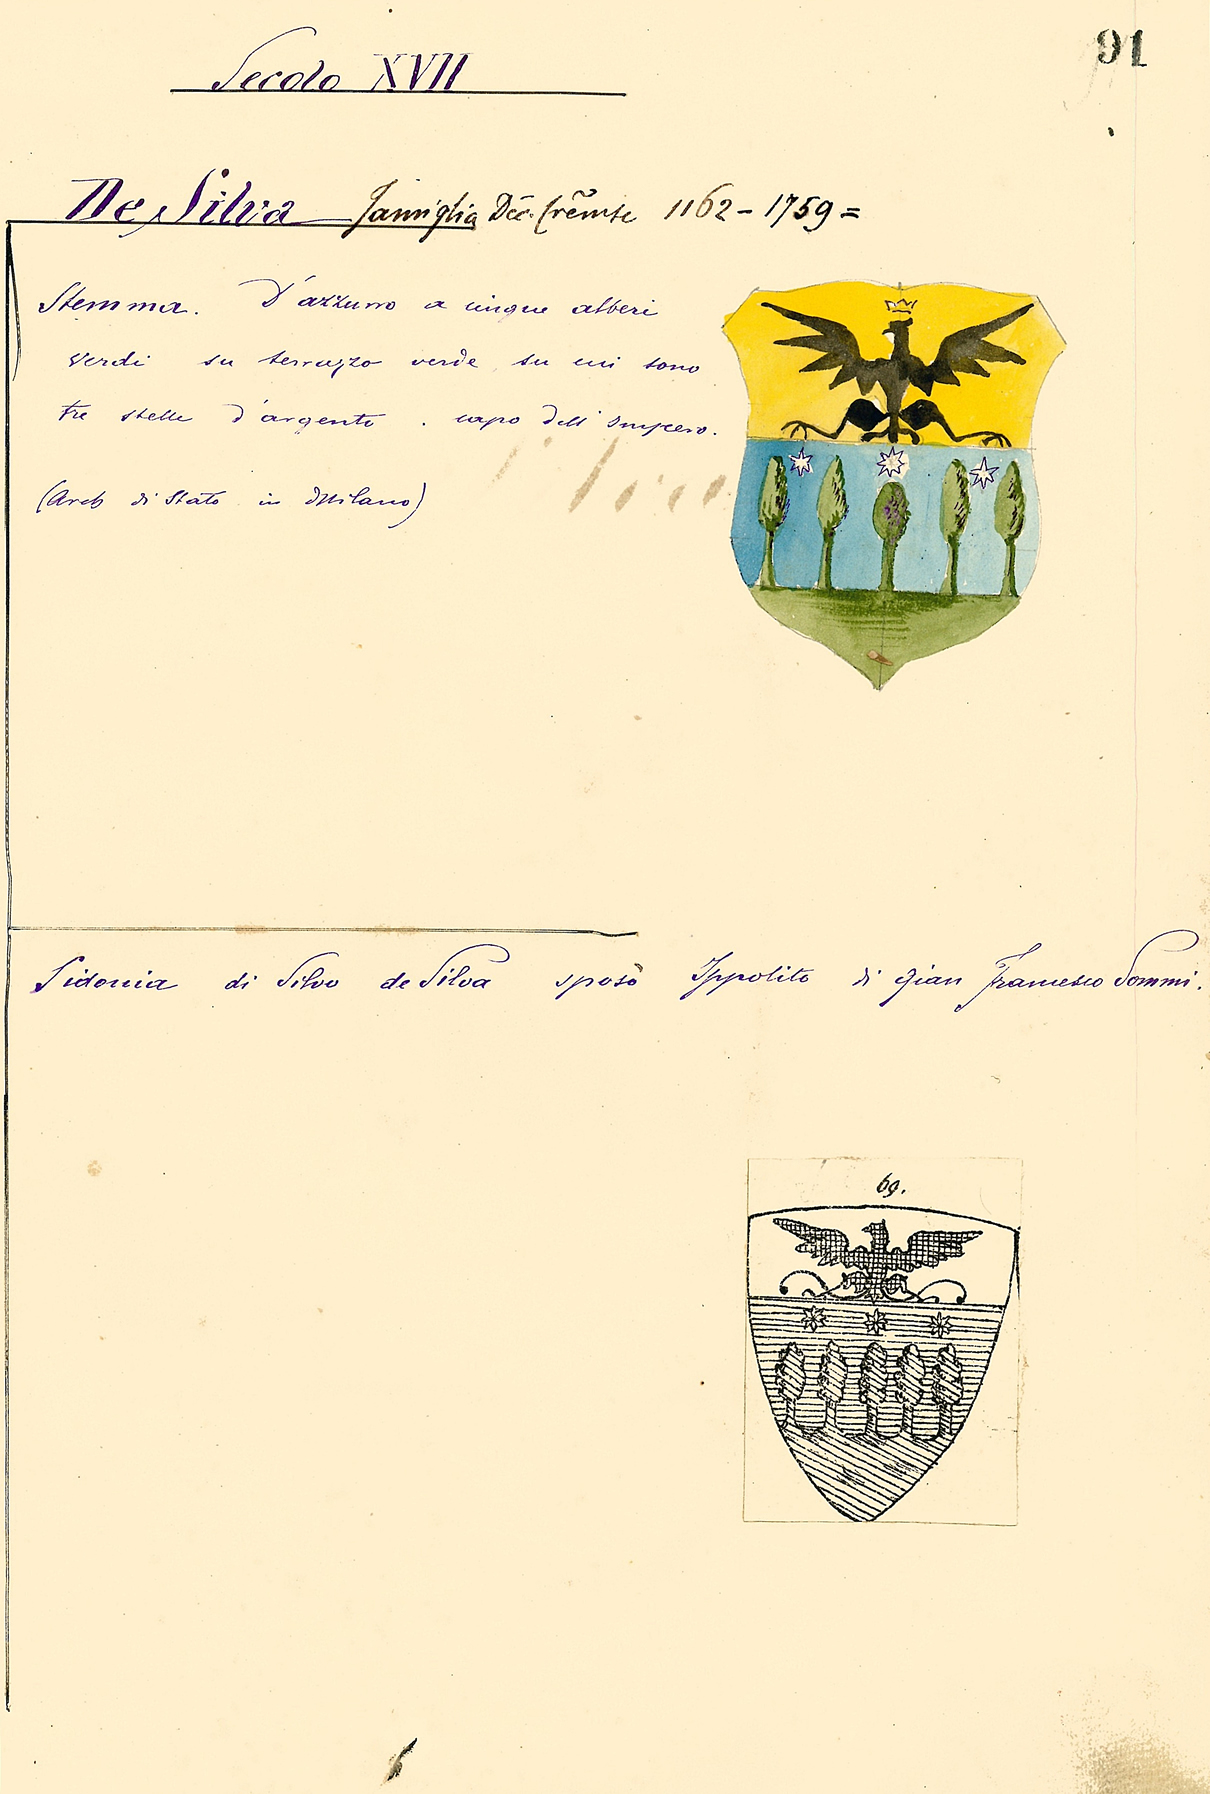 91
Secolo XVII
De Silva famiglia Dec. Cremse 1162 - 1759 =
Stemma. D'azzurro a cinque alberi
verdi su terrazzo verde su cui sono
tre stelle d'argento. capo dell'Impero.
(Arch di Stato in Milano)
Sidonia di Silvo de Silva sposò Ippolito di Gian Francesco Sommi.
69.